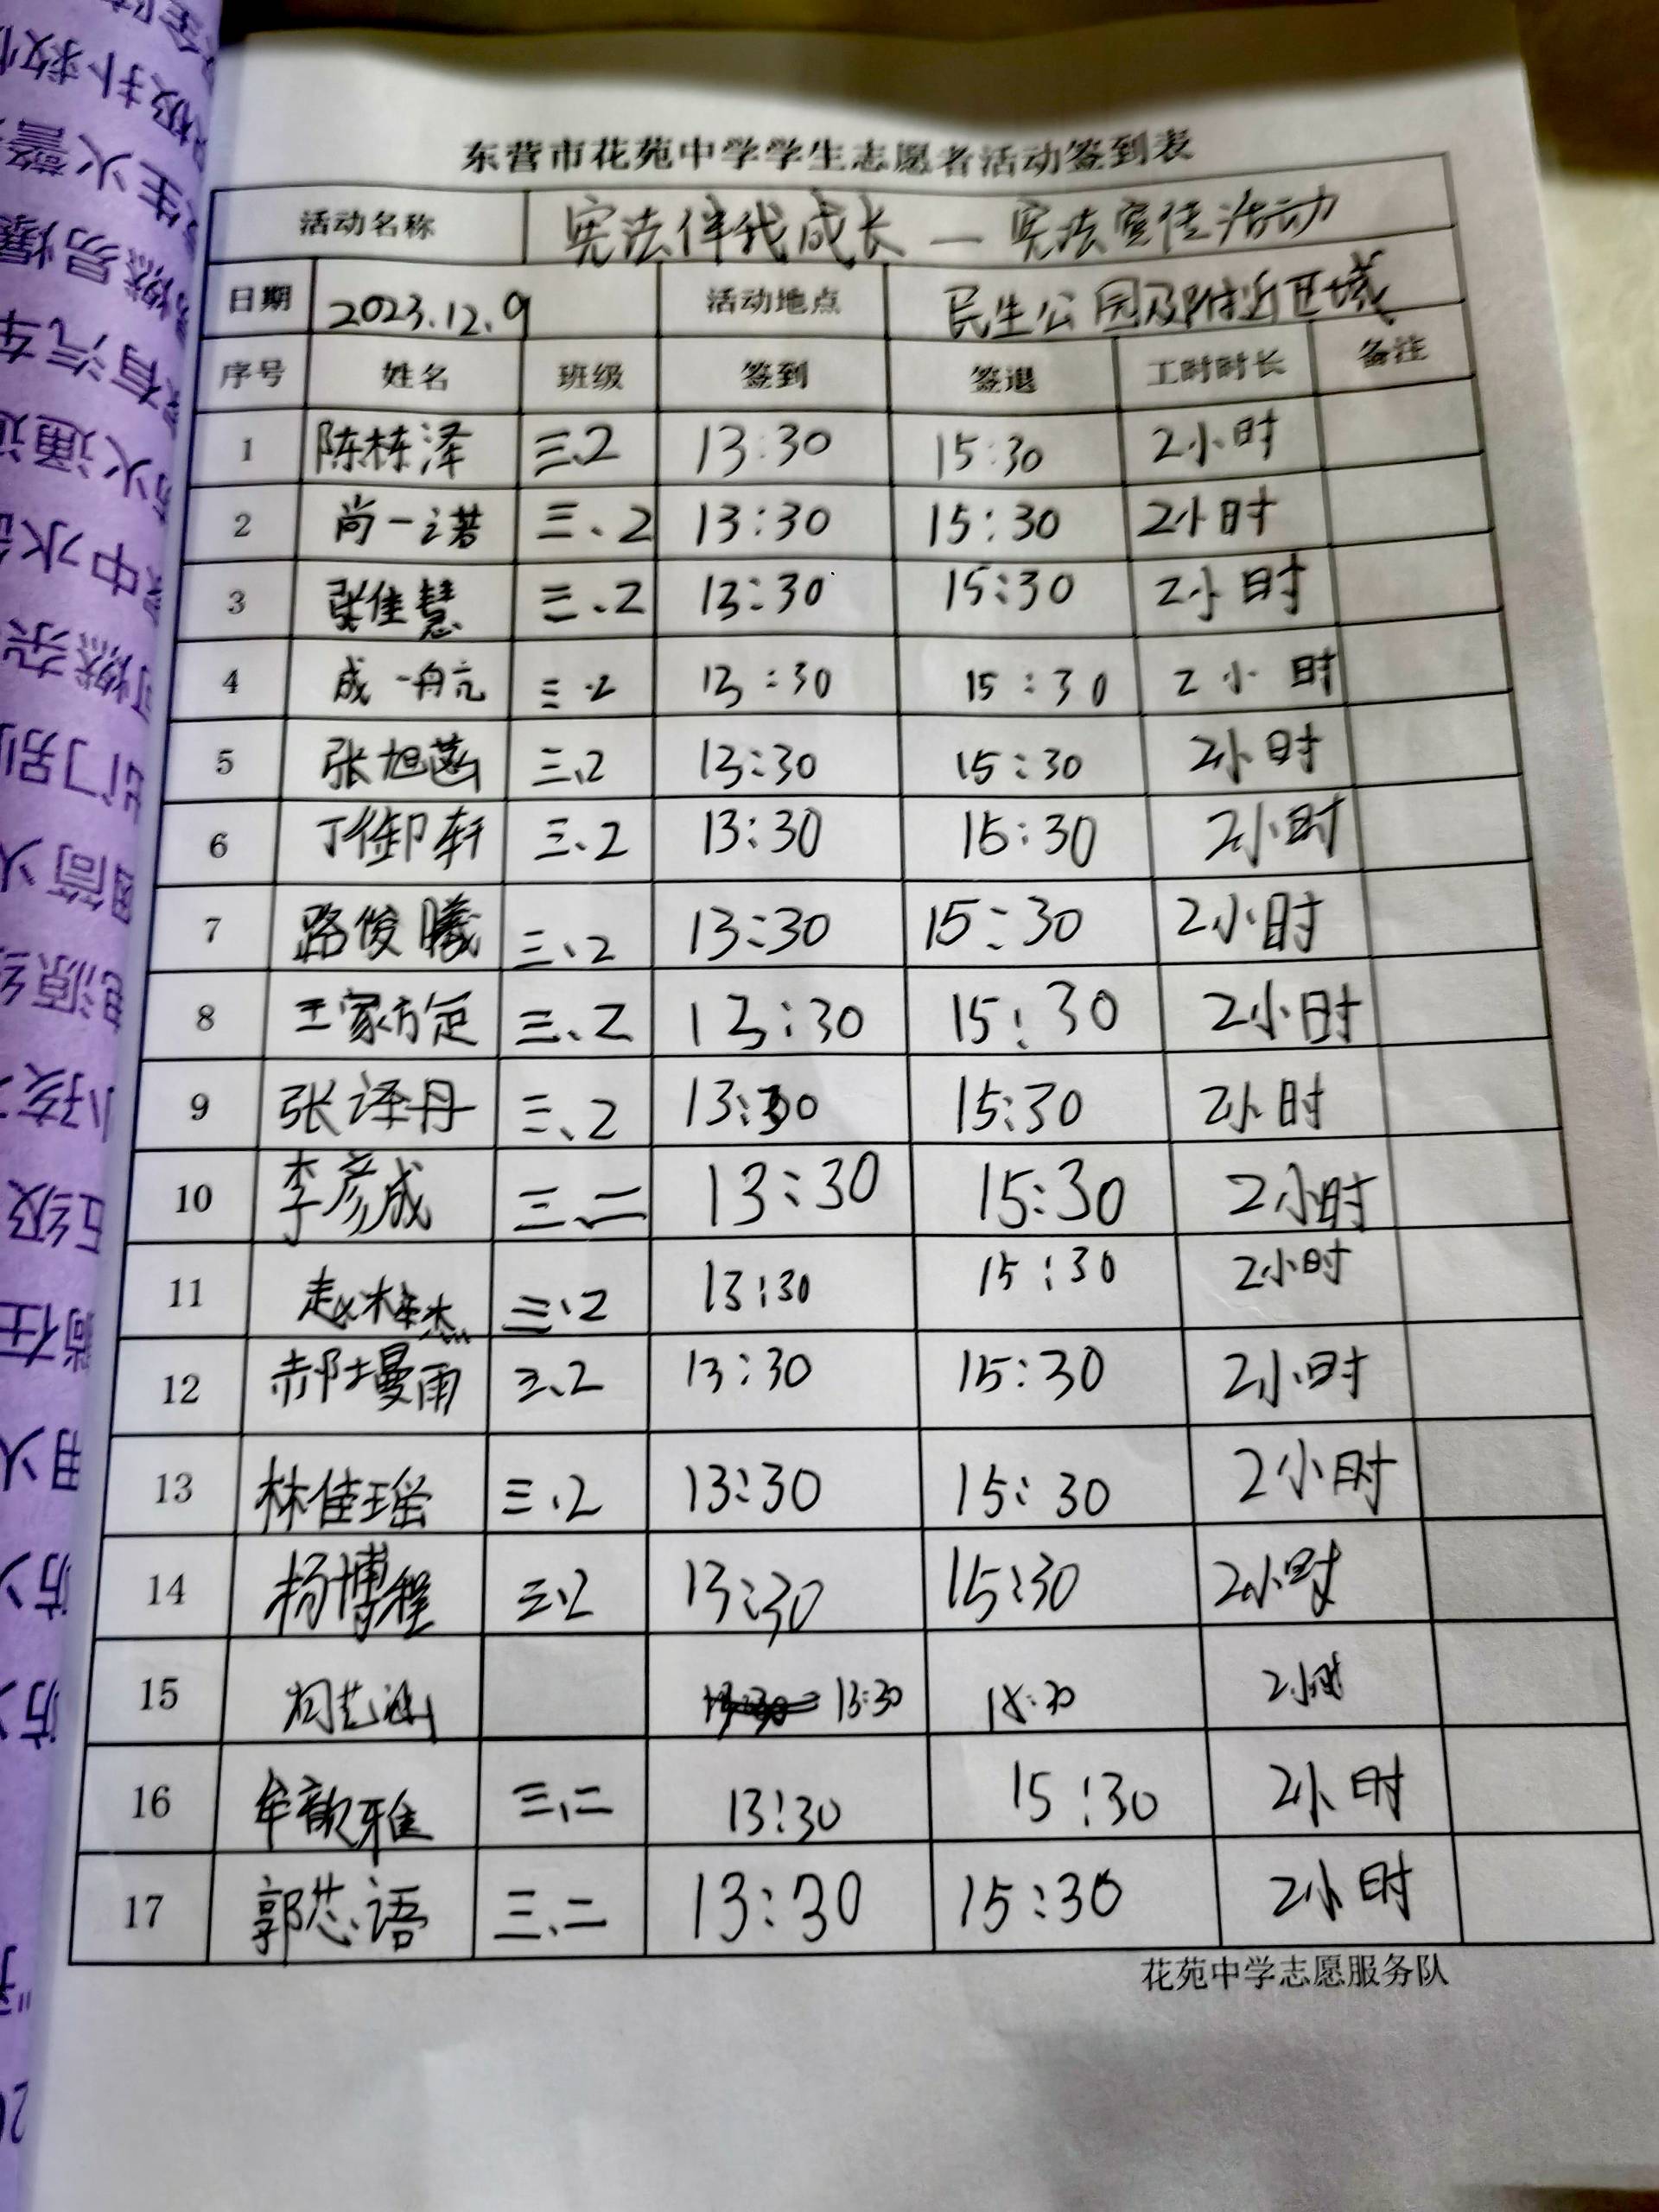 东营市花苑中学学生志愿者活动签到表
活动名称 宪法伴我成长 — 宪法宣传活动
日期 2023.12.9 活动地点 民生公园及附近区域
序号 姓名 班级 签到 签退 工时时长 备注
1 陈栋泽 三.2 13:30 15:30 2小时
2 尚一诺 三、2 13:30 15:30 2小时
3 张佳慧 三、2 13:30 15:30 2小时
4 成一舟亢 三.2 13:30 15:30 2小时
5 张旭菡 三、2 13:30 15:30 2小时
6 丁御轩 三、2 13:30 15:30 2小时
7 路俊曦 三、2 13:30 15:30 2小时
8 王家 三、2 13:30 15:30 2小时
9 张译丹 三、2 13:30 15:30 2小时
10 李彦成 三、二 13:30 15:30 2小时
11 赵梓杰 三、2 13:30 15:30 2小时
12 郝墁雨 三、2 13:30 15:30 2小时
13 林佳瑶 三、2 13:30 15:30 2小时
14 杨博程 三.2 13:30 15:30 2小时
15 13:30 2小时
16 牟歆雅 三、二 13:30 15:30 2小时
17 郭芯语 三、二 13:30 15:30 2小时
花苑中学志愿服务队